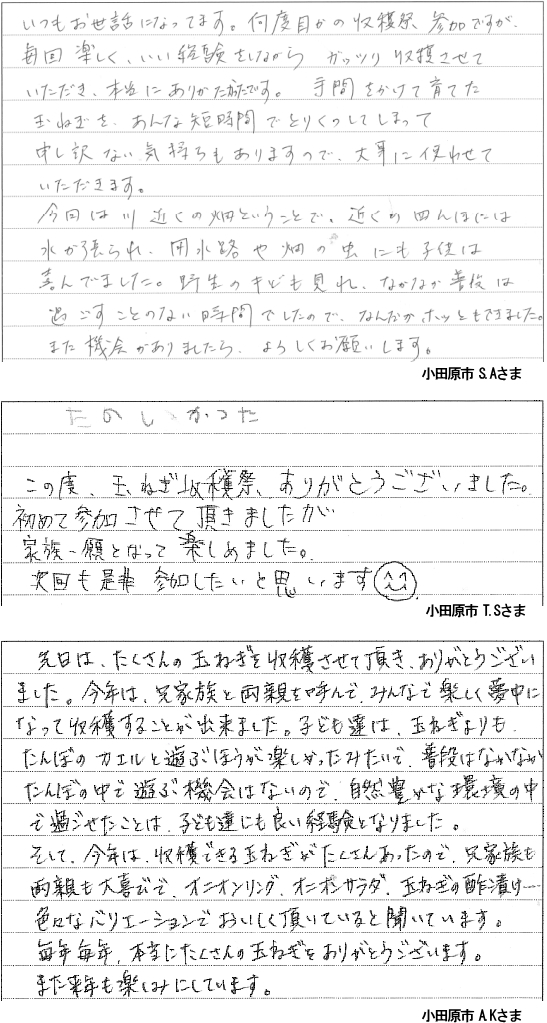 いつもお世話になってます。何度目かの収穫祭 参加ですが、
毎回 楽しく、いい経験をしながら ガッツリ 収穫させて
いただき、本当に ありがたいです。 手間をかけて育てた
玉ねぎを、あんな短時間でとりつくしてしまって
申し訳ない気持ちもありますので、大事に使わせて
いただきます。
今回は川近くの畑ということで、近くの田んぼには
水が張られ、用水路や畑の虫にも子供は
喜んでました。野生のキジも見れ、なかなか普段は
過ごすことのない時間でしたので、なんだかホッともできました。
また機会がありましたら、よろしくお願いします。
小田原市 S.Aさま
たのしかった
この度、玉ねぎ収穫祭、ありがとうございました。
初めて参加させて頂きましたが
家族一願となって楽しめました。
次回も是非 参加したいと思います
小田原市 T.Sさま
先日は、たくさんの玉ねぎを収穫させて頂き、ありがとうござい
ました。今年は、兄家族と両親を呼んで、みんなで楽しく夢中に
なって収穫することが出来ました。子ども達は、玉ねぎよりも、
たんぼのカエルと遊ぶほうが楽しかったみたいで、普段はなかなか
たんぼの中で遊ぶ機会はないので、自然豊かな環境の中
で過ごせたことは、子ども達にも良い経験となりました。
そして、今年は、収穫できる玉ねぎがたくさんあったので、兄家族も
両親も大喜びで、オニオンリング、オニオンサラダ、玉ねぎの酢漬け…
色々なバリエーションでおいしく頂いていると聞いています。
毎年毎年、本当にたくさんの玉ねぎをありがとうございます。
また来年も楽しみにしています。
小田原市 A.Kさま